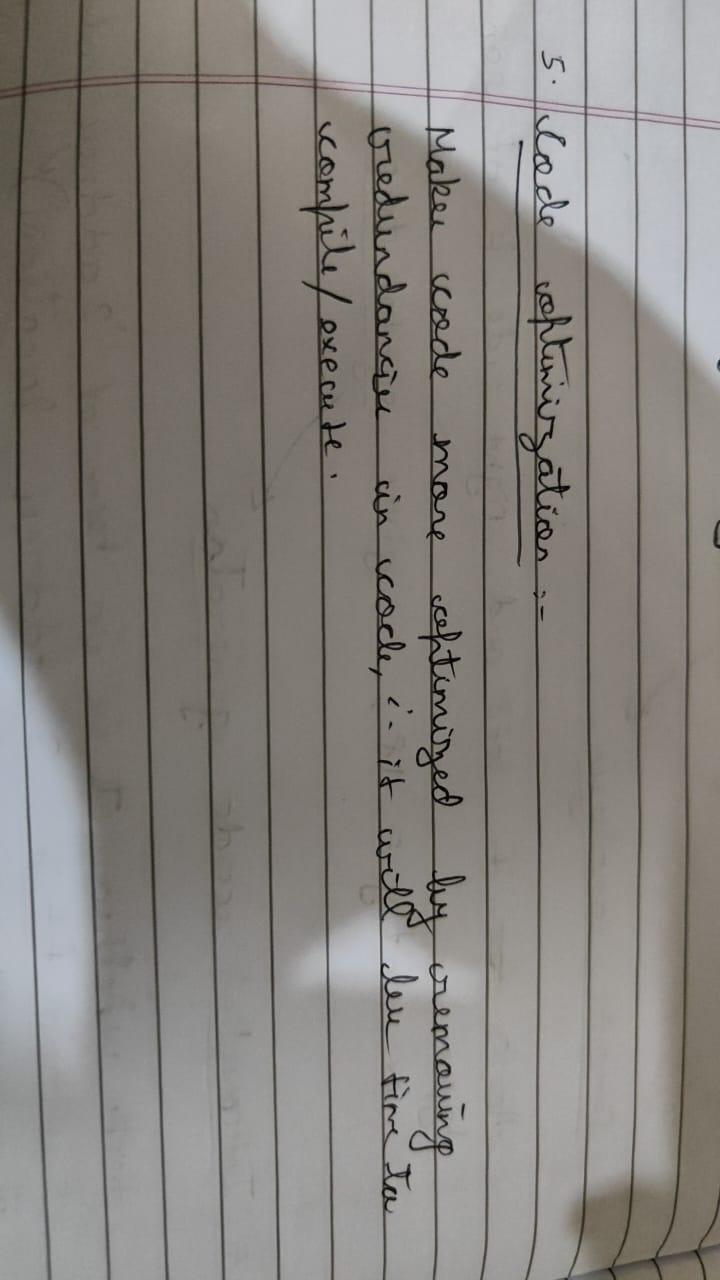 5. Code optimization :-
Makes code more optimized by removing
redundancies in code, ∴ it will less time to
compile/execute.